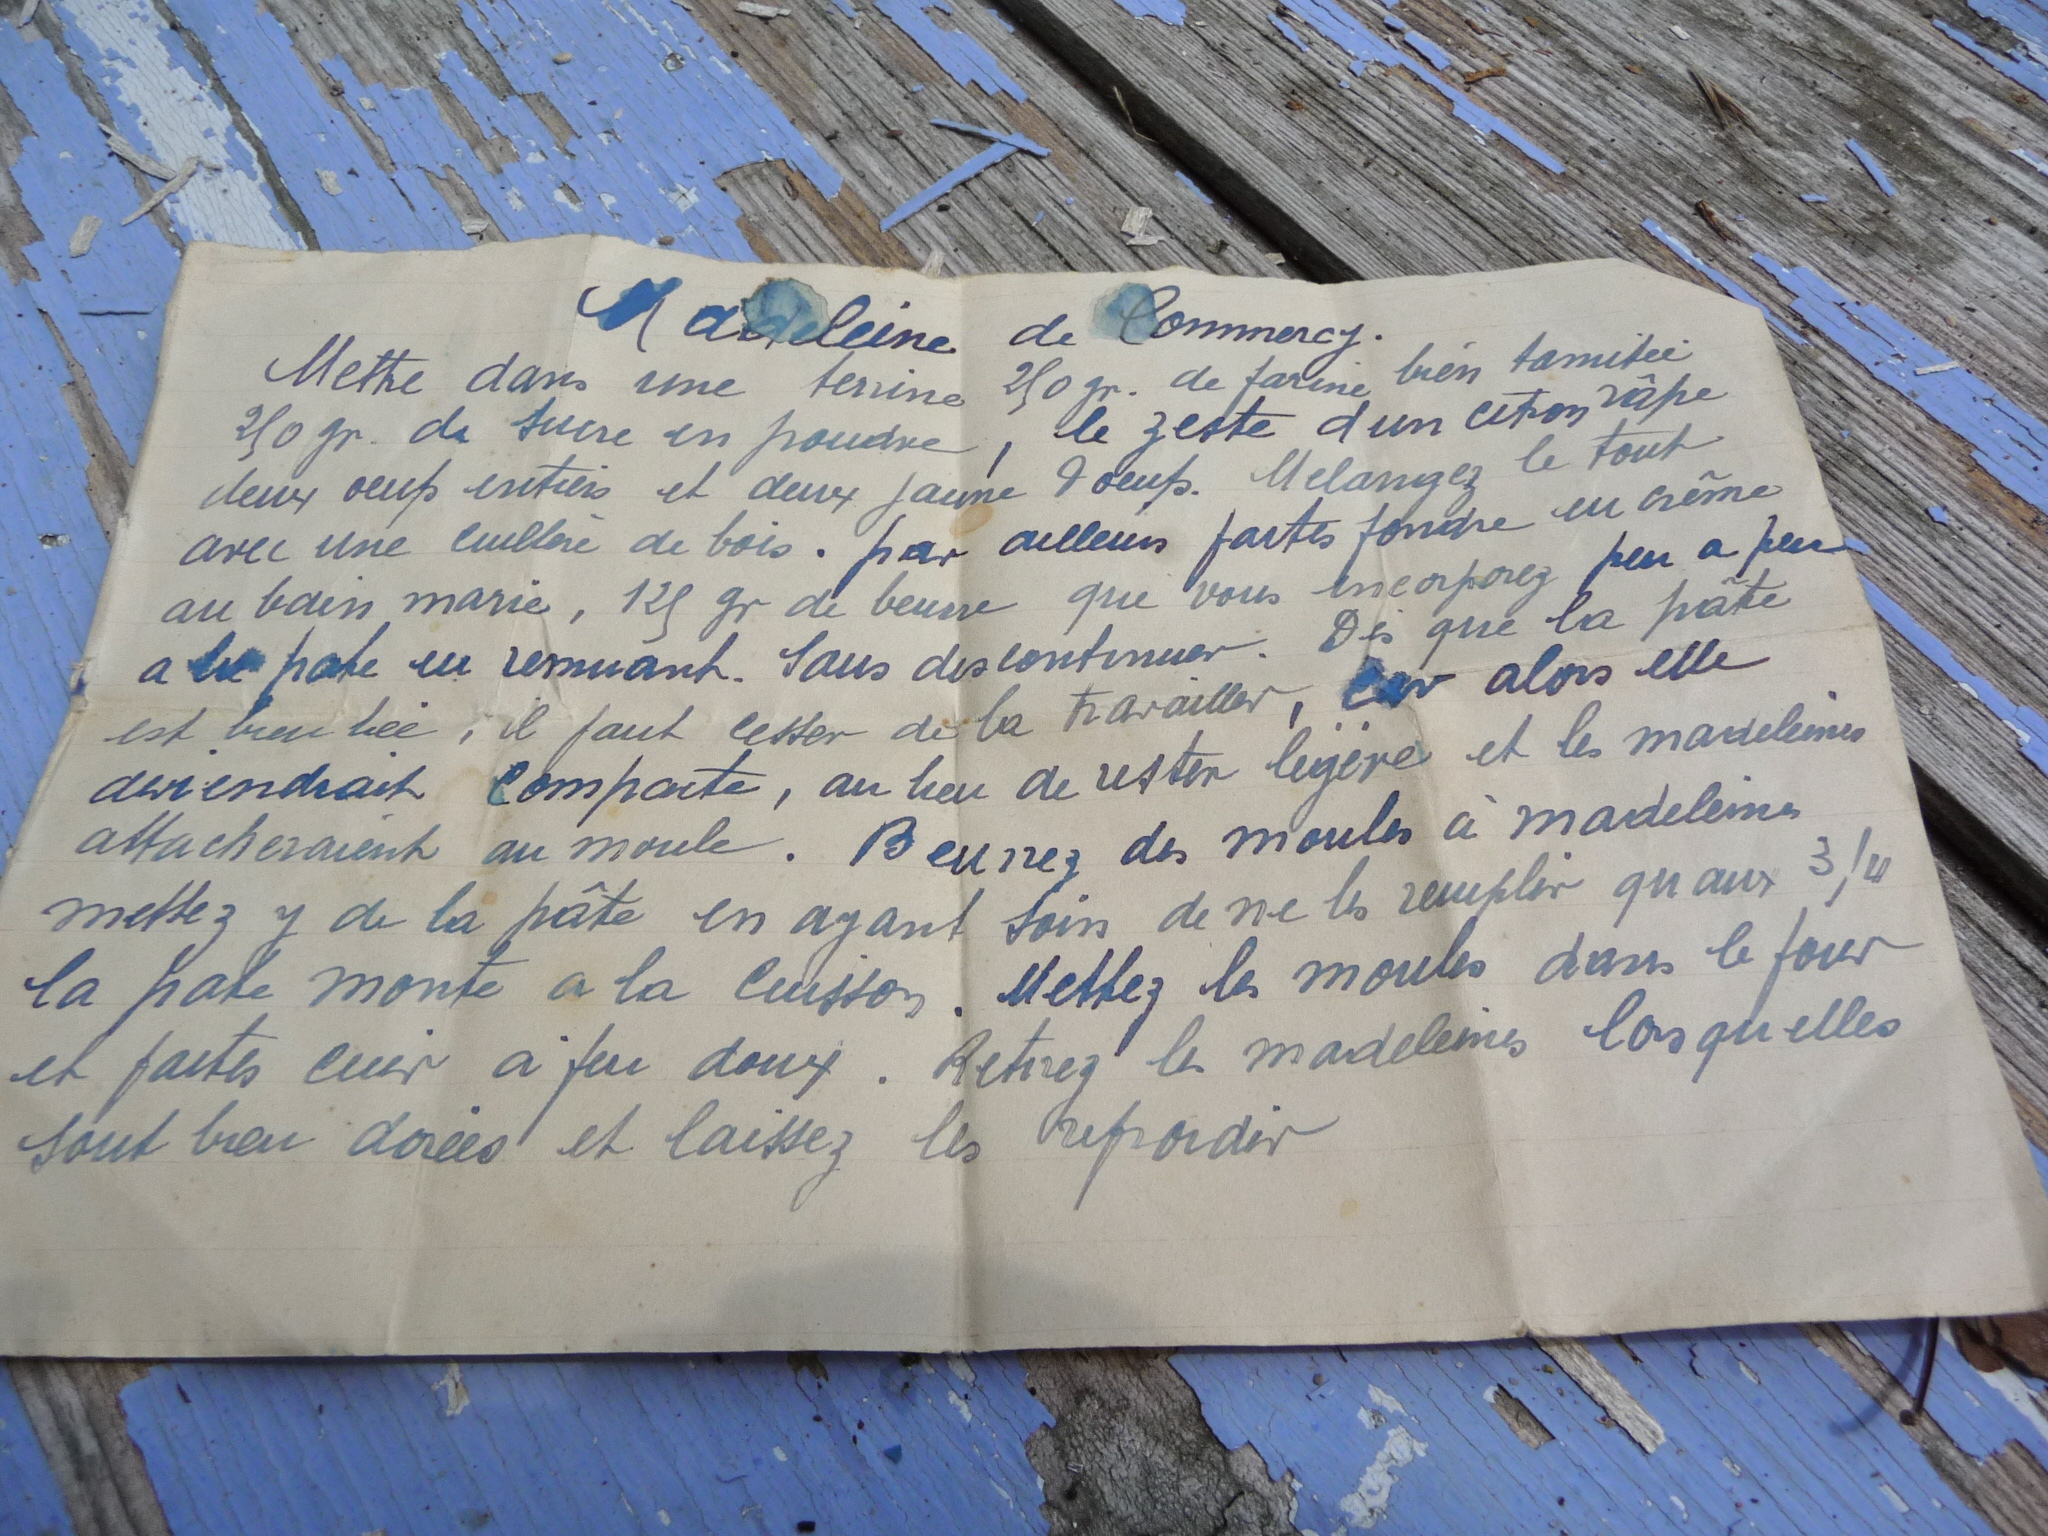 Madeleine de Commercy.
Mettre dans une terrine 250 gr. de farine bien tamiseé
250 gr. de sucre en poudre, le zeste d'un citron râpe
deux oeufs entiers et deux jaune d'oeufs. Melangez le tout
avec une cuillère de bois. par ailleurs faites fondre en crême
au bain marie, 125 gr de beurre que vous incorporez peu a peu
a la pate en remuant. Sans descontinuer. Dès que la pâte
est bien liée, il faut cesser de la travailler, car alors elle
deviendrait compacte, au lieu de rester légère et les madeleines
attacheraient au moule. Beurrez des moules à madeleines
mettez y de la pâte en ayant soin de ne les remplir qu'aux 3/4
la pate monte a la cuisson. Mettez les moules dans le four
et faites cuir à feu doux. Retirez les madeleines lorsqu'elles
sont bien dorées et laissez les refroidir